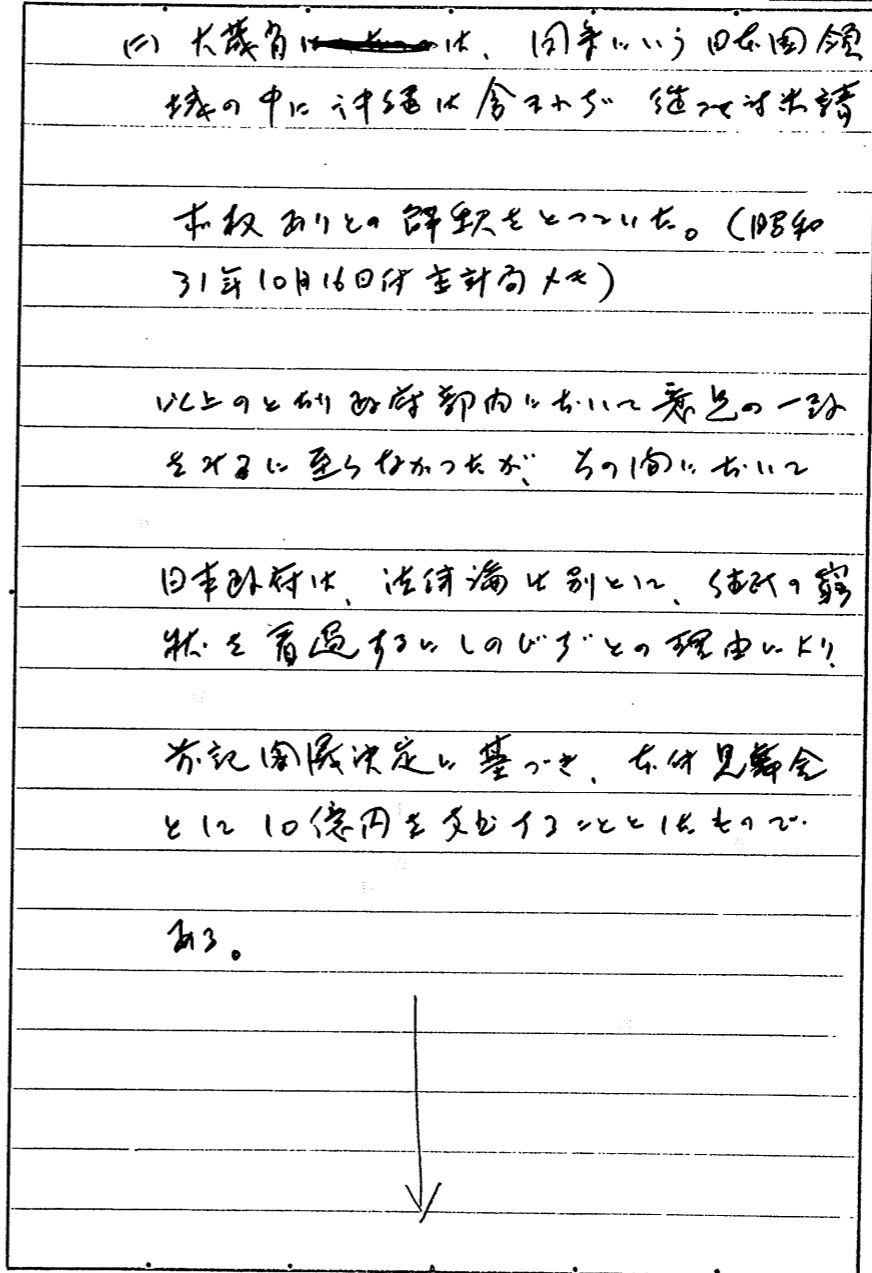 (ハ) 大蔵省は、同条にいう日本国領
域の中に沖縄は含まれず 従つて対米請
求権ありとの解釈をとつていた。(昭和
31年10月16日付主計局メモ)
以上のとおり政府部内において意見の一致
をみるに至らなかつたが、その間において
日本政府は、法律論は別として、住民の窮
状を看過するにしのびずとの理由により、
前記閣議決定に基づき、本件見舞金
として10億円を支出することとしたもので
ある。